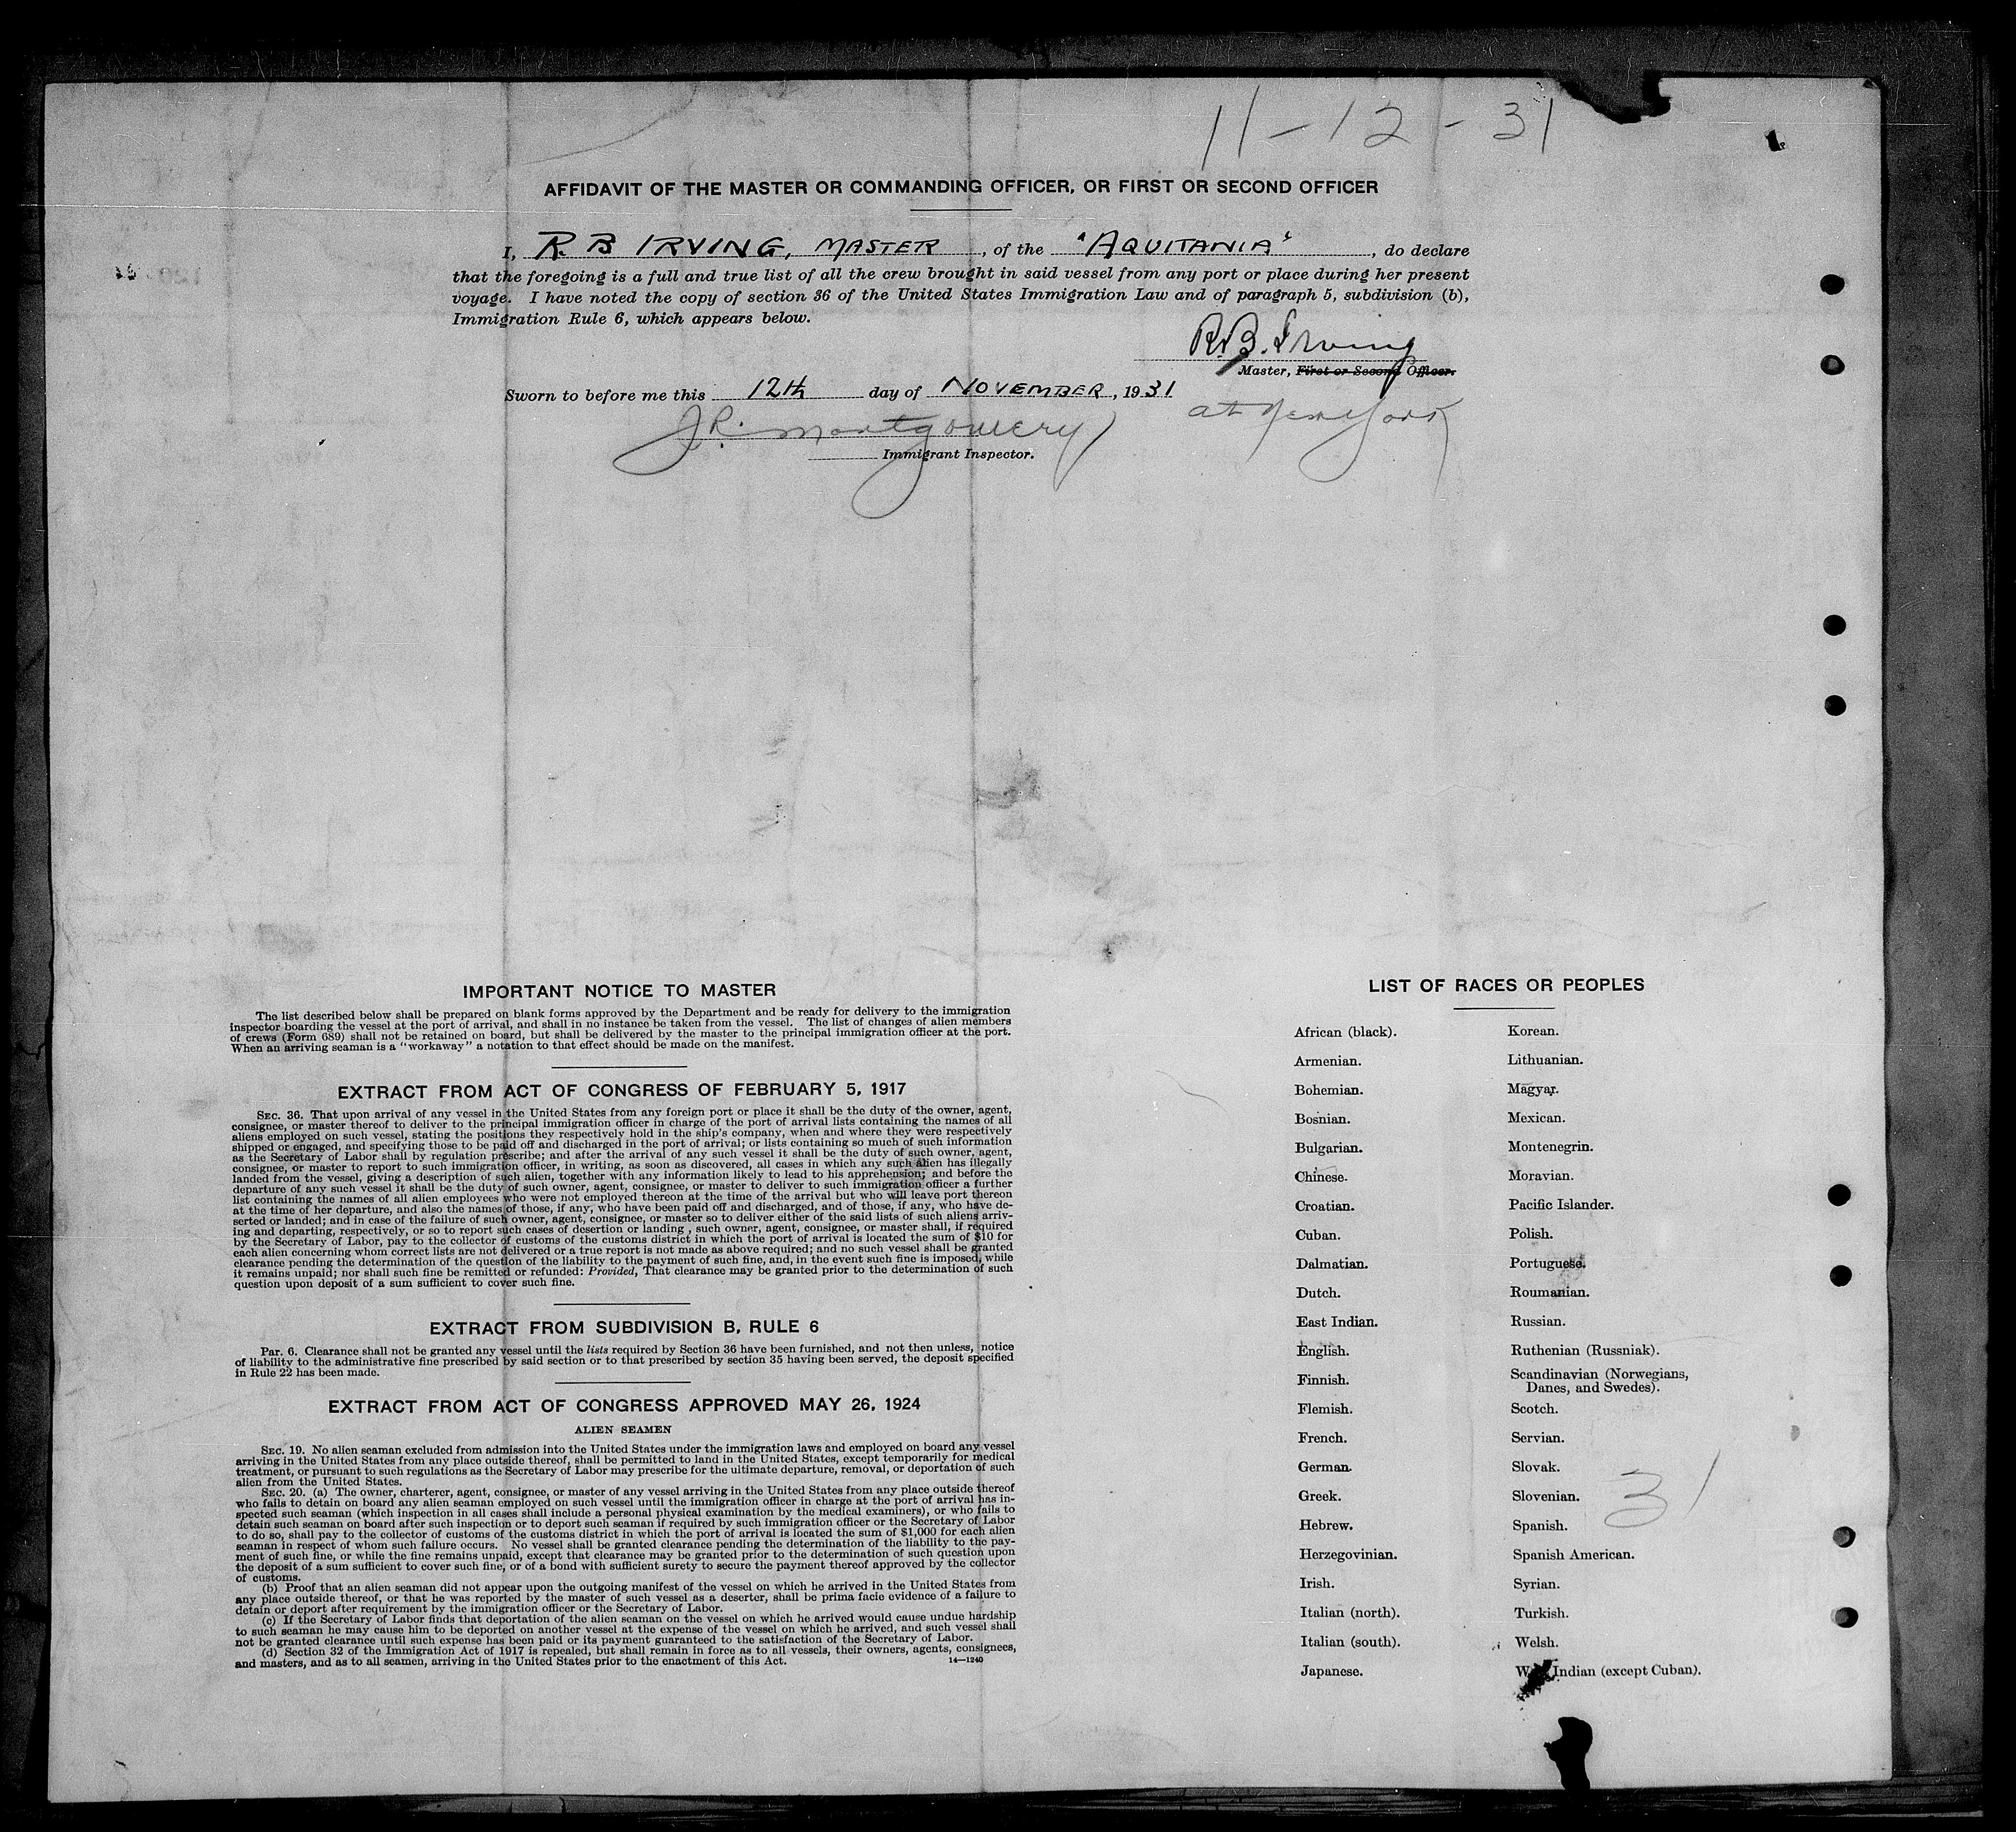 11-12-31
AFFIDAVIT OF THE MASTER OR COMMANDING OFFICER, OR FIRST OR SECOND OFFICER
I, R. B IRVING, MASTER, of the "AQUITANIA", do declare
that the foregoing is a full and true list of all the crew brought in said vessel from any port or place during her present
voyage. I have noted the copy of section 36 of the United States Immigration Law and of paragraph 5, subdivision (b),
Immigration Rule 6, which appears below.
R.B. Irving
Master, First or Second Officer.
Sworn to before me this 12th day of NOVEMBER, 1931
at New York
J.R. Montgomery
Immigrant Inspector.
IMPORTANT NOTICE TO MASTER
The list described below shall be prepared on blank forms approved by the Department and be ready for delivery to the immigration
inspector boarding the vessel at the port of arrival, and shall in no instance be taken from the vessel. The list of changes of alien members
of crews (Form 689) shall not be retained on board, but shall be delivered by the master to the principal immigration officer at the port.
When an arriving seaman is a "workaway" a notation to that effect should be made on the manifest.
EXTRACT FROM ACT OF CONGRESS OF FEBRUARY 5, 1917
SEC. 36. That upon arrival of any vessel in the United States from any foreign port or place it shall be the duty of the owner, agent,
consignee, or master thereof to deliver to the principal immigration officer in charge of the port of arrival lists containing the names of all
aliens employed on such vessel, stating the positions they respectively hold in the ship's company, when and where they were respectively
shipped or engaged, and specifying those to be paid off and discharged in the port of arrival; or lists containing so much of such information
as the Secretary of Labor shall by regulation prescribe; and after the arrival of any such vessel it shall be the duty of such owner, agent,
consignee, or master to report to such immigration officer, in writing, as soon as discovered, all cases in which any such alien has illegally
landed from the vessel, giving a description of such alien, together with any information likely to lead to his apprehension; and before the
departure of any such vessel it shall be the duty of such owner, agent, consignee, or master to deliver to such immigration officer a further
list containing the names of all alien employees who were not employed thereon at the time of the arrival but who will leave port thereon
at the time of her departure, and also the names of those, if any, who have been paid off and discharged, and of those, if any, who have de-
serted or landed; and in case of the failure of such owner, agent, consignee, or master so to deliver either of the said lists of such aliens arriv-
ing and departing, respectively, or so to report such cases of desertion or landing , such owner, agent, consignee, or master shall, if required
by the Secretary of Labor, pay to the collector of customs of the customs district in which the port of arrival is located the sum of $10 for
each alien concerning whom correct lists are not delivered or a true report is not made as above required; and no such vessel shall be granted
clearance pending the determination of the question of the liability to the payment of such fine, and, in the event such fine is imposed, while
it remains unpaid; nor shall such fine be remitted or refunded: Provided, That clearance may be granted prior to the determination of such
question upon deposit of a sum sufficient to cover such fine.
EXTRACT FROM SUBDIVISION B, RULE 6
Par. 6. Clearance shall not be granted any vessel until the lists required by Section 36 have been furnished, and not then unless, notice
of liability to the administrative fine prescribed by said section or to that prescribed by section 35 having been served, the deposit specified
in Rule 22 has been made.
EXTRACT FROM ACT OF CONGRESS APPROVED MAY 26, 1924
ALIEN SEAMEN
SEC. 19. No alien seaman excluded from admission into the United States under the immigration laws and employed on board any vessel
arriving in the United States from any place outside thereof, shall be permitted to land in the United States, except temporarily for medical
treatment, or pursuant to such regulations as the Secretary of Labor may prescribe for the ultimate departure, removal, or deportation of such
alien from the United States.
SEC. 20. (a) The owner, charterer, agent, consignee, or master of any vessel arriving in the United States from any place outside thereof
who fails to detain on board any alien seaman employed on such vessel until the immigration officer in charge at the port of arrival has in-
spected such seaman (which inspection in all cases shall include a personal physical examination by the medical examiners), or who fails to
detain such seaman on board after such inspection or to deport such seaman if required by such immigration officer or the Secretary of Labor
to do so, shall pay to the collector of customs of the customs district in which the port of arrival is located the sum of $1,000 for each alien
seaman in respect of whom such failure occurs. No vessel shall be granted clearance pending the determination of the liability to the pay-
ment of such fine, or while the fine remains unpaid, except that clearance may be granted prior to the determination of such question upon
the deposit of a sum sufficient to cover such fine, or of a bond with sufficient surety to secure the payment thereof approved by the collector
of customs.
(b) Proof that an alien seaman did not appear upon the outgoing manifest of the vessel on which he arrived in the United States from
any place outside thereof, or that he was reported by the master of such vessel as a deserter, shall be prima facie evidence of a failure to
detain or deport after requirement by the immigration officer or the Secretary of Labor.
(c) If the Secretary of Labor finds that deportation of the alien seaman on the vessel on which he arrived would cause undue hardship
to such seaman he may cause him to be deported on another vessel at the expense of the vessel on which he arrived, and such vessel shall
not be granted clearance until such expense has been paid or its payment guaranteed to the satisfaction of the Secretary of Labor.
(d) Section 32 of the Immigration Act of 1917 is repealed, but shall remain in force as to all vessels, their owners, agents, consignees,
and masters, and as to all seamen, arriving in the United States prior to the enactment of this Act.
14—1240
LIST OF RACES OR PEOPLES
African (black).
Armenian.
Bohemian.
Bosnian.
Bulgarian.
Chinese.
Croatian.
Cuban.
Dalmatian.
Dutch.
East Indian.
English.
Finnish.
Flemish.
French.
German.
Greek.
Hebrew.
Herzegovinian.
Irish.
Italian (north).
Italian (south).
Japanese.
Korean.
Lithuanian.
Magyar.
Mexican.
Montenegrin.
Moravian.
Pacific Islander.
Polish.
Portuguese.
Roumanian.
Russian.
Ruthenian (Russniak).
Scandinavian (Norwegians,
Danes, and Swedes).
Scotch.
Servian.
Slovak.
Slovenian.
Spanish.
Spanish American.
Syrian.
Turkish.
Welsh.
Indian (except Cuban).
31